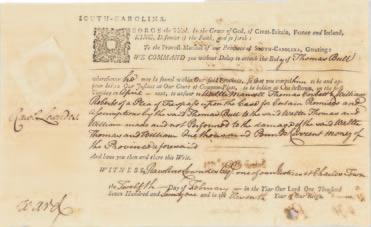 SOUTH-CAROLINA.
GEORGE the Third, by the Grace of God, of Great-Britain, France and Ireland,
KING, Defender of the Faith, and so forth:
To the Provost Marshal of our Province of SOUTH-CAROLINA, Greeting:
WE COMMAND you without Delay to attach the Body of Thomas Butl
wheresoever he may be found within Our said Province, so that you may him to be and ap-
pear before Our Justices at Our Court of Common-Pleas, to be holden at Charlestown, on the first
Tuesday in April next, to answer to Walter Mansell Thomas Corbett & William
Roberts of a Plea of Trespass upon the Case for Certain Promises and
assumptions by the said Thomas to the said Walter Thomas and
William made and not Performed to the damage of the said Walter
Thomas and William One thousand Pounds Current Money of
the Province aforesaid
And have you then and there this Writ.
WITNESS Rawlins Lowndes Esqr. one of our Justices at Charles Town
the Twelfth Day of February in the Year Our Lord One Thousand
Seven Hundred and Seventy one and in the Eleventh Year of Our Reign.
Raws. Lowndes
Ward